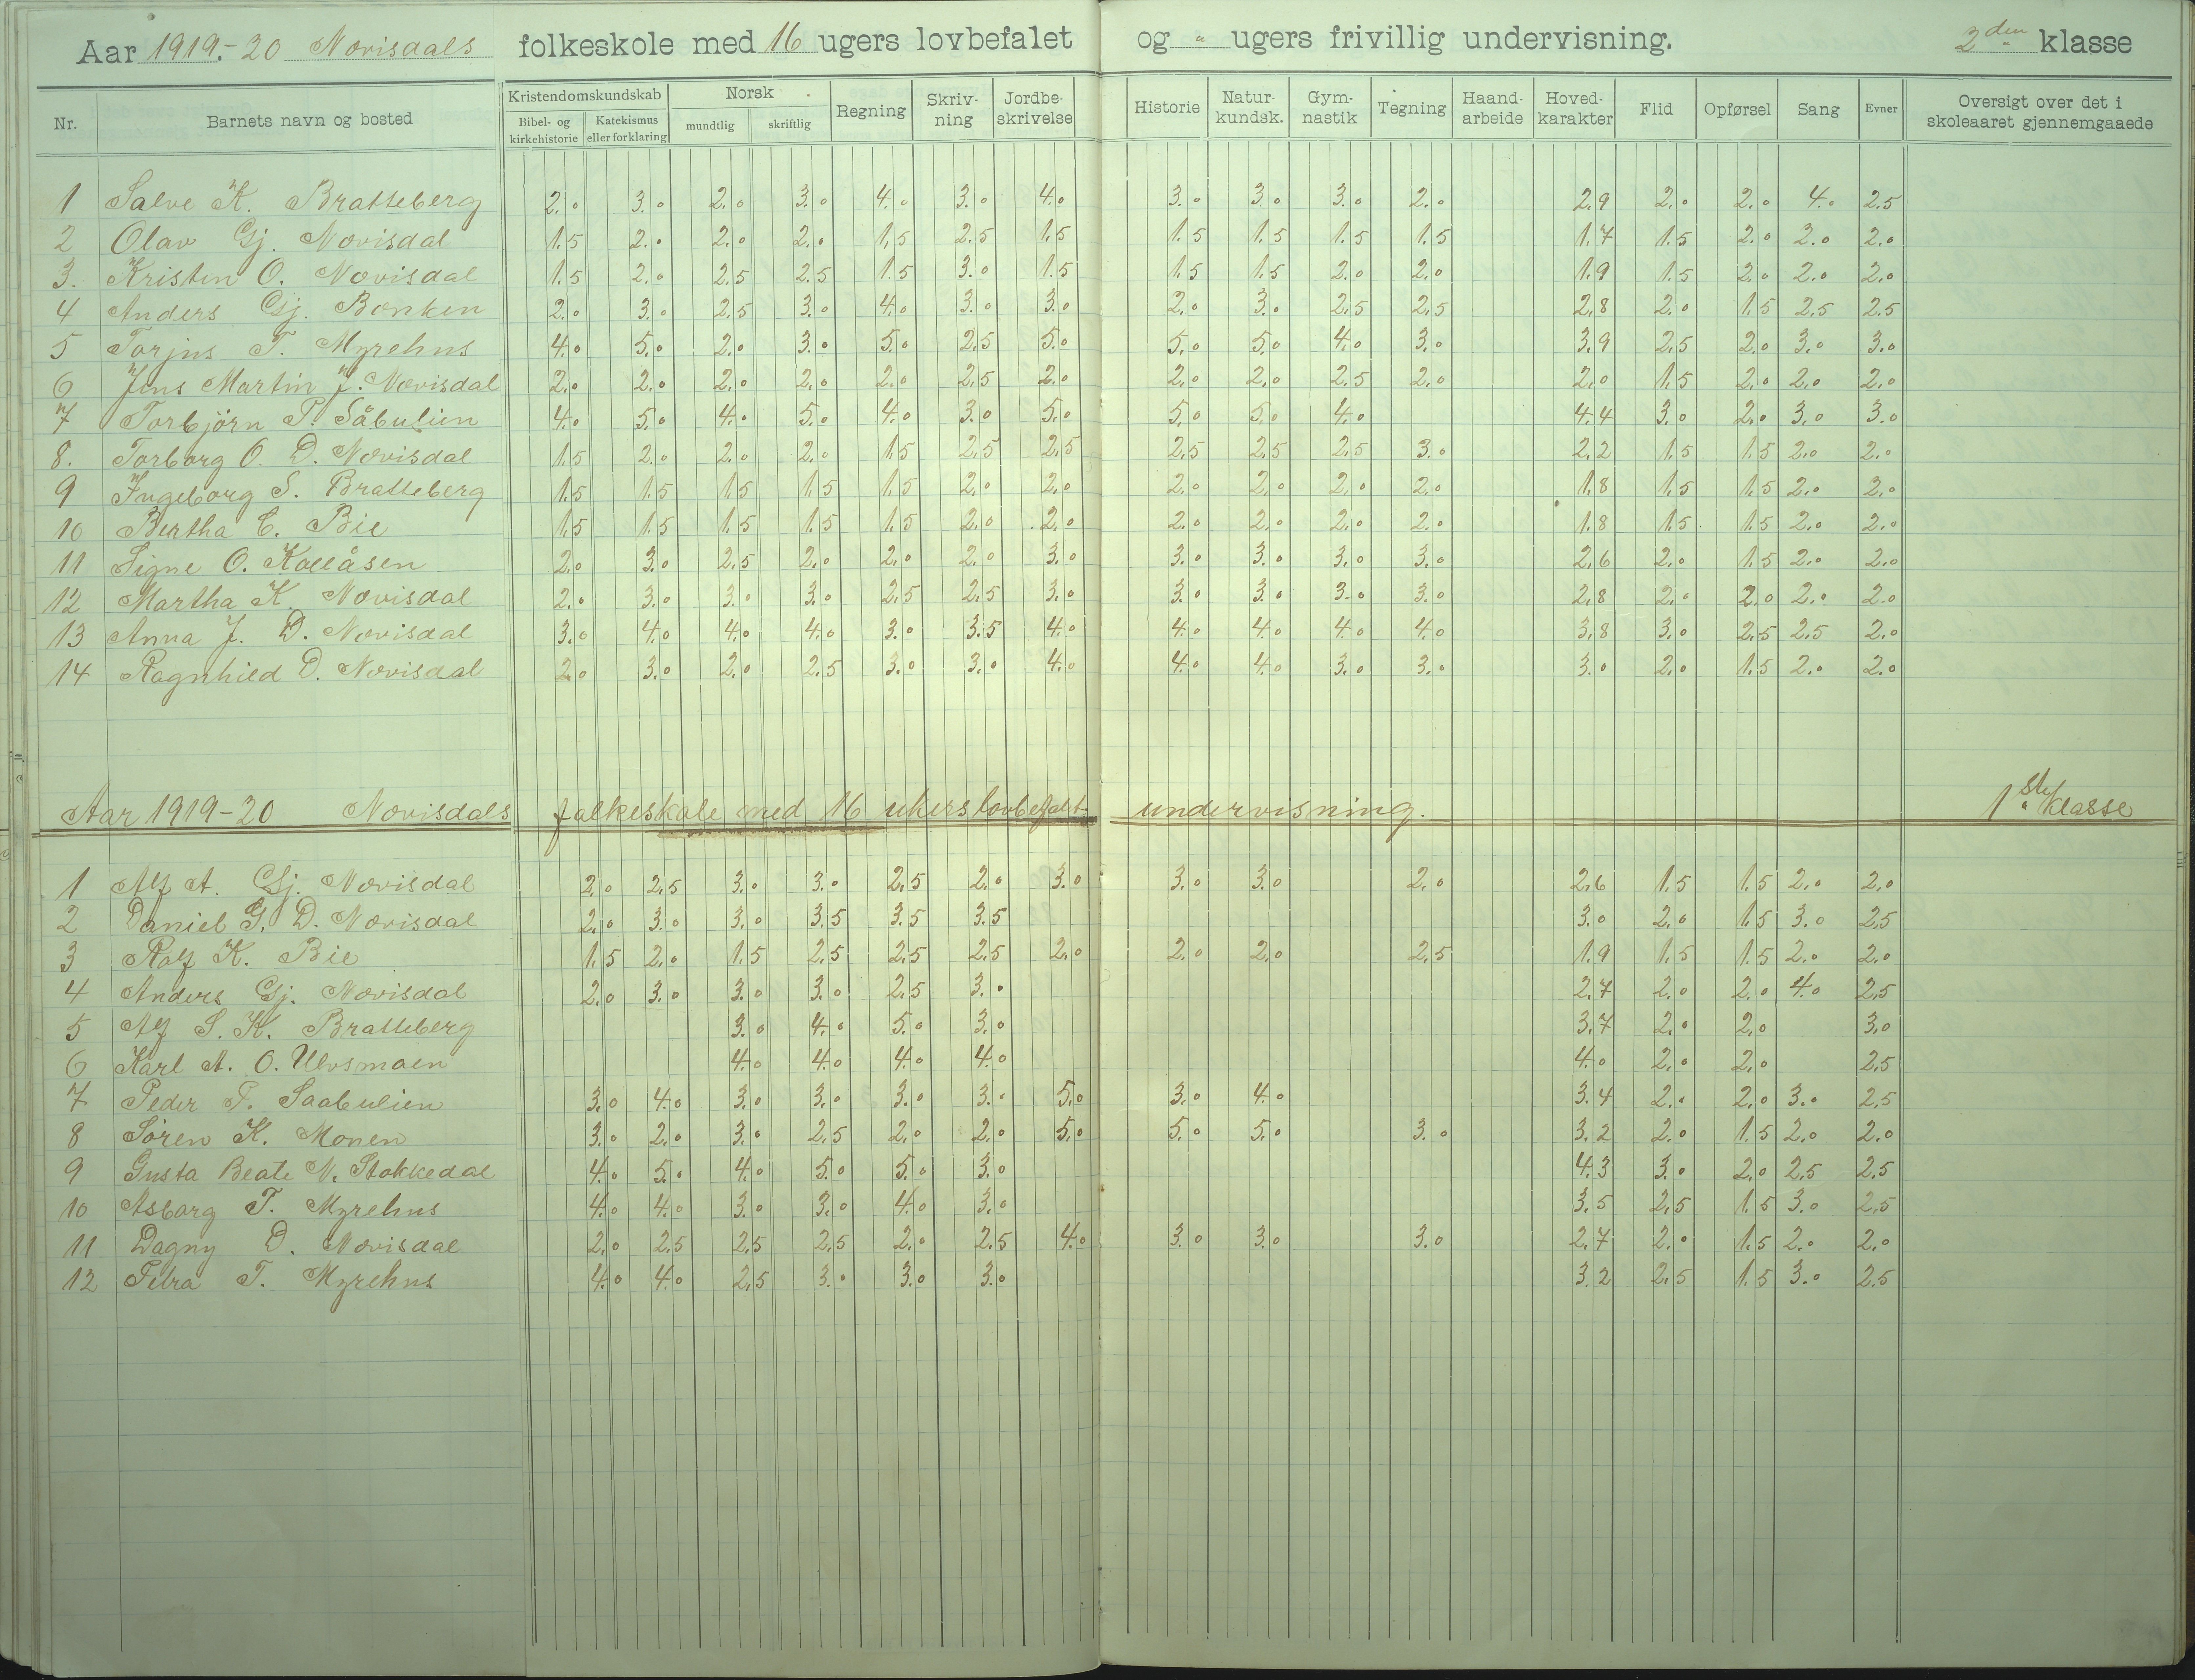 Aar 1919.-20 Nævisdals folkeskole med 16 ugers lovbefalet og " ugers frivillig undervisning. 2den klasse
Nr. Barnets navn og bosted Kristendomskundskab Bibel- og kirkehistorie Katekismus eller forklaring Norsk mundtlig skriftlig Regning Skriv-ning Jordbe-skrivelse Historie Natur-kundsk. Gym-nastik Tegning Haand-arbeide Hoved-karakter Flid Opførsel Sang Evner Oversigt over det i skoleaaret gjennemgaaede
1 Salve K. Bratteberg 2.0 3.0 2.0 3.0 4.0 3.0 4.0 3.0 3.0 3.0 2.0 2.9 2.0 2.0 4.0 2.5
2 Olav Gj. Nævisdal 1.5 2.0 2.0 2.0 1.5 2.5 1.5 1.5 1.5 1.5 1.5 1.7 1.5 2.0 2.0 2.0
3. Kristen O. Nævisdal 1.5 2.0 2.5 2.5 1.5 3.0 1.5 1.5 1.5 2.0 2.0 1.9 1.5 2.0 2.0 2.0
4 Anders Gj. Bænken 2.0 3.0 2.5 3.0 4.0 3.0 3.0 2.0 3.0 2.5 2.5 2.8 2.0 1.5 2.5 2.5
5 Torjus T. Myrehus 4.0 5.0 2.0 3.0 5.0 2.5 5.0 5.0 5.0 4.0 3.0 3.9 2.5 2.0 3.0 3.0
6 Jens Martin J. Nævisdal 2.0 2.0 2.0 2.0 2.0 2.5 2.0 2.0 2.0 2.5 2.0 2.0 1.5 2.0 2.0 2.0
7 Torbjörn P. Såbulien 4.0 5.0 4.0 5.0 4.0 3.0 5.0 5.0 5.0 4.0 4.4 3.0 2.0 3.0 3.0
8. Torborg O. D. Nævisdal 1.5 2.0 2.0 2.0 1.5 2.5 2.5 2.5 2.5 2.5 3.0 2.2 1.5 1.5 2.0 2.0
9 Ingeborg S. Bratteberg 1.5 1.5 1.5 1.5 1.5 2.0 2.0 2.0 2.0 2.0 2.0 1.8 1.5 1.5 2.0 2.0
10 Bertha C. Bie 1.5 1.5 1.5 1.5 1.5 2.0 2.0 2.0 2.0 2.0 2.0 1.8 1.5 1.5 2.0 2.0
11 Signe O. Kollåsen 2.0 3.0 2.5 2.0 2.0 2.0 3.0 3.0 3.0 3.0 3.0 2.6 2.0 1.5 2.0 2.0
12 Martha K. Nævisdal 2.0 3.0 3.0 3.0 2.5 2.5 3.0 3.0 3.0 3.0 3.0 2.8 2.0 2.0 2.0 2.0
13 Anna J. D. Nævisdal 3.0 4.0 4.0 4.0 3.0 3.5 4.0 4.0 4.0 4.0 4.0 3.8 3.0 2.5 2.5 2.0
14 Ragnhild D. Nævisdal 2.0 3.0 2.0 2.5 3.0 3.0 4.0 4.0 4.0 3.0 3.0 3.0 2.0 1.5 2.0 2.0
Aar 1919-20 Nævisdals folkeskole med 16 ukers lovbefalt undervisning. 1ste klasse
1 Alf A. Gj. Nævisdal 2.0 2.5 3.0 3.0 2.5 2.0 3.0 3.0 3.0 2.0 2.6 1.5 1.5 2.0 2.0
2 Daniel G. D. Nævisdal 2.0 3.0 3.0 3.5 3.5 3.5 3.0 2.0 1.5 3.0 2.5
3 Rolf K. Bie 1.5 2.0 1.5 2.5 2.5 2.5 2.0 2.0 2.0 2.5 1.9 1.5 1.5 2.0 2.0
4 Anders Gj. Nævisdal 2.0 3.0 3.0 3.0 2.5 3.0 2.7 2.0 2.0 4.0 2.5
5 Alf S. K. Bratteberg 3.0 4.0 5.0 3.0 3.7 2.0 2.0 3.0
6 Karl A. O. Ulvsmoen 4.0 4.0 4.0 4.0 4.0 2.0 2.0 2.5
7 Peder P. Saabulien 3.0 4.0 3.0 3.0 3.0 3.0 5.0 3.0 4.0 3.4 2.0 2.0 3.0 2.5
8 Sören K. Monen 3.0 2.0 3.0 2.5 2.0 2.0 5.0 5.0 5.0 3.0 3.2 2.0 1.5 2.0 2.0
9 Gusta Beate N. Stokkedal 4.0 5.0 4.0 5.0 5.0 3.0 4.3 3.0 2.0 2.5 2.5
10 Asborg T. Myrehus 4.0 4.0 3.0 3.0 4.0 3.0 3.5 2.5 1.5 3.0 2.5
11 Dagny D. Nævisdal 2.0 2.5 2.5 2.5 2.0 2.5 4.0 3.0 3.0 3.0 2.7 2.0 1.5 2.0 2.0
12 Petra T. Myrehus 4.0 4.0 2.5 3.0 3.0 3.0 3.2 2.5 1.5 3.0 2.5